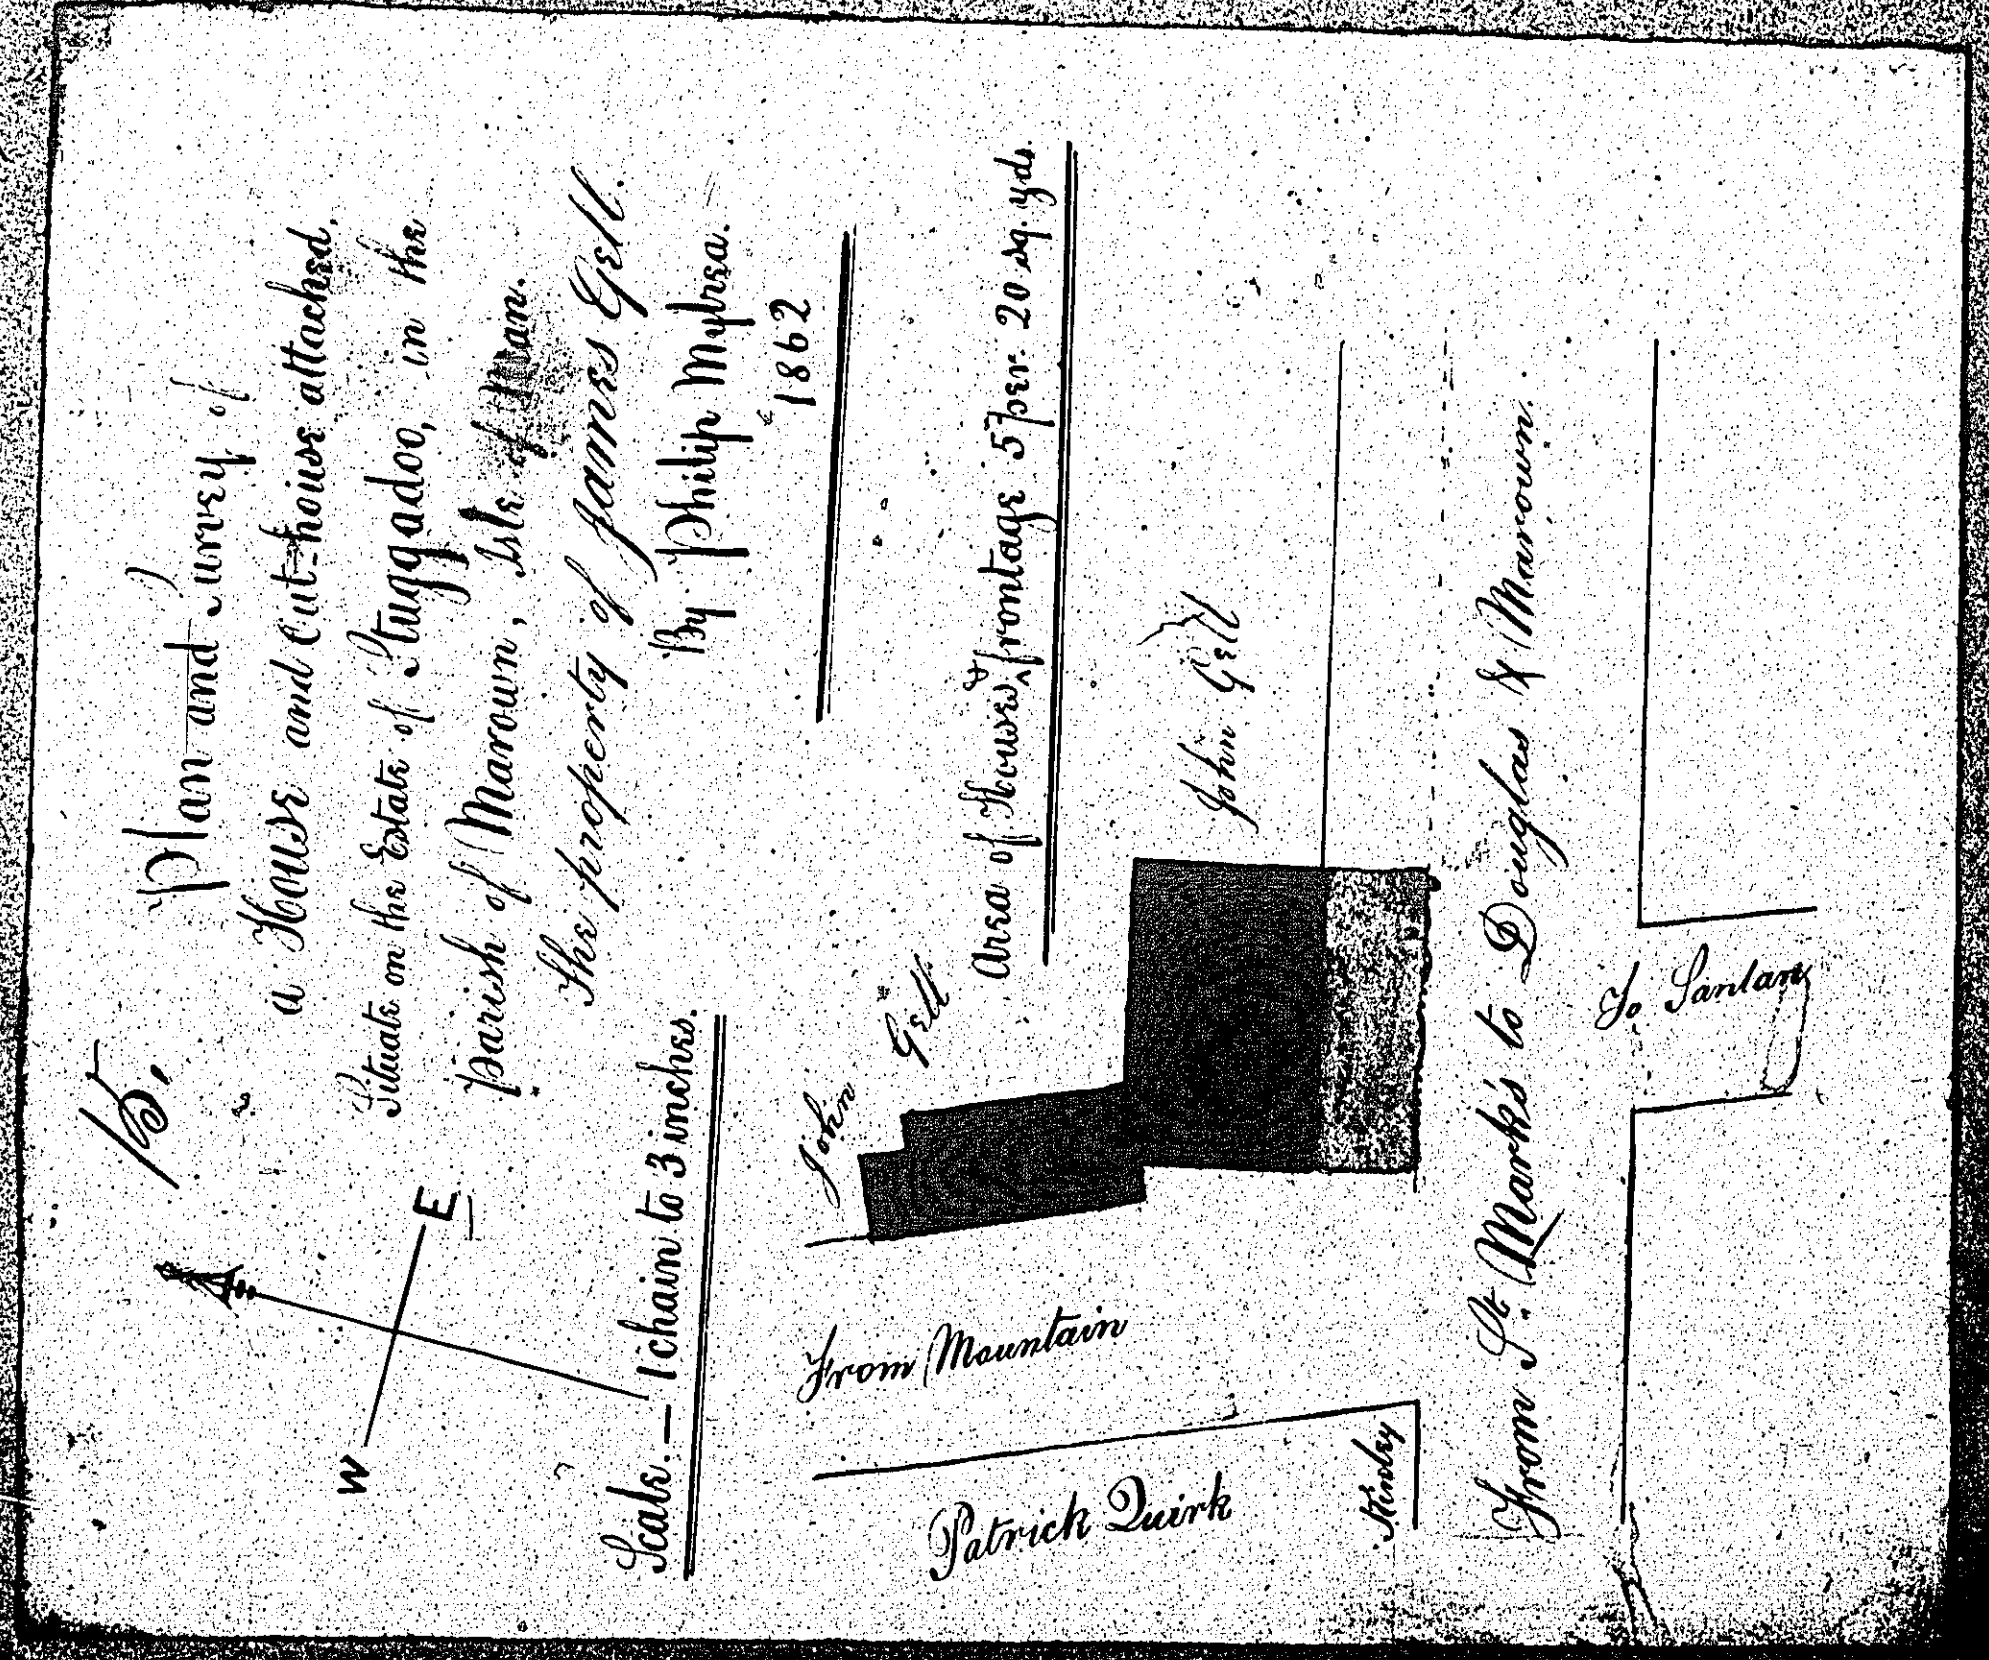 Plan and Survey of
a House and Out-house attached,
Situate on the Estate of Stuggadoo, in the
Parish of Marown, Isle of Man.
The property of James Gell.
By Philip Mylrea.
1862
W E
Scale. — 1 chain to 3 inches.
Area of Houses, & frontage 5 per. 20 sq. yds.
John Gell.
John Gell
From Mountain
Patrick Quirk
Kinley
From St. Mark's to Douglas & Marown.
To Santan